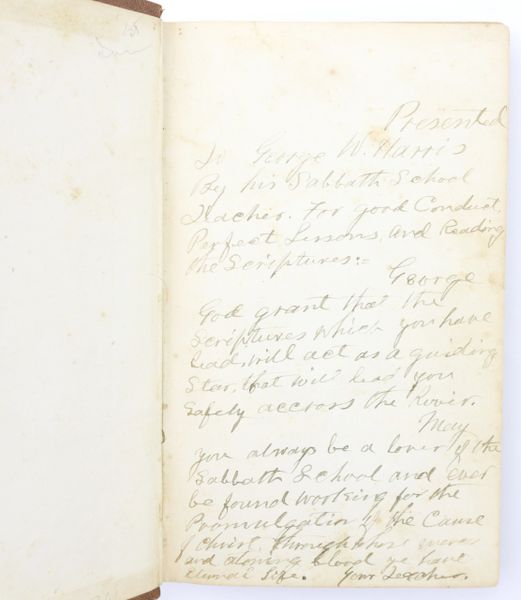 Presented
To George W. Harris
By his Sabbath School
Teacher. For good Conduct,
Perfect Lessons, and Reading
the Scriptures:=
George
God grant that the
Scriptures which you have
read, will act as a guiding
Star, that will lead you
Safely accross the River.
May
you always be a lover of the
Sabbath School and Ever
be found working for the
Promulgation of the Cause
of Christ, through whose
and atoning blood we have
eternal life. Your Teacher.